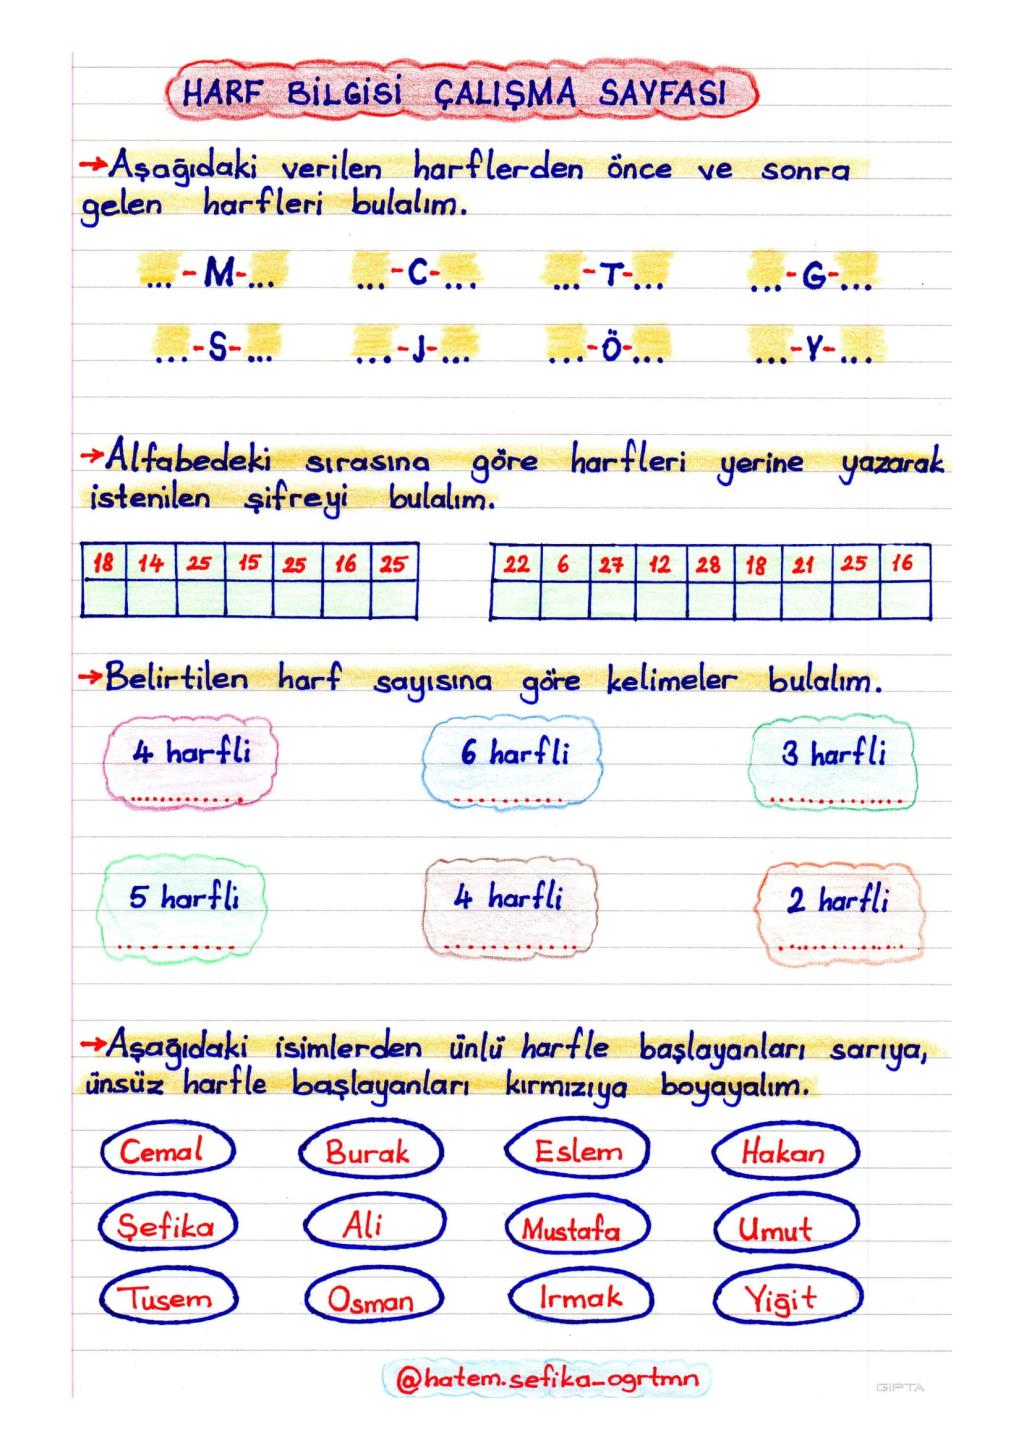 HARF BİLGİSİ ÇALIŞMA SAYFASI
→Aşağıdaki verilen harflerden önce ve sonra
gelen harfleri bulalım.
...-M-... ...-C-... ...-T-... ...-G-...
...-S-... ...-J-... ...-Ö-... ...-Y-...
→Alfabedeki sırasına göre harfleri yerine yazarak
istenilen şifreyi bulalım.
18 14 25 15 25 16 25 22 6 27 12 28 18 21 25 16
→Belirtilen harf sayısına göre kelimeler bulalım.
4 harfli 6 harfli 3 harfli
............ .......... .............
5 harfli 4 harfli 2 harfli
.......... ............ .............
→Aşağıdaki isimlerden ünlü harfle başlayanları sarıya,
ünsüz harfle başlayanları kırmızıya boyayalım.
Cemal Burak Eslem Hakan
Şefika Ali Mustafa Umut
Tusem Osman Irmak Yiğit
@hatem.sefika_ogrtmn
GIPTA